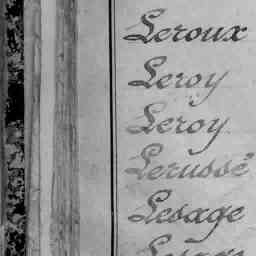 Leroux
Leroy
Leroy
Lerussé
Lesage
Lesage